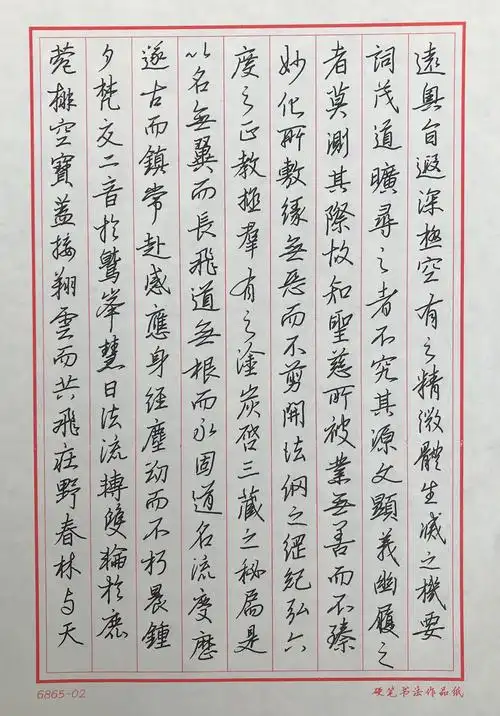 遠奧自遐深極空有之精微體生滅之機要
詞茂道曠尋之者不究其源文顯義幽履之
者莫測其際故知聖慈所被業無善而不臻
妙化所敷緣無惡而不剪開法網之綱紀弘六
度之正教拯羣有之塗炭啓三藏之秘扃是
以名無翼而長飛道無根而永固道名流慶歷
遂古而鎮常赴感應身經塵劫而不朽晨鍾
夕梵交二音於鷲峯慧日法流轉雙輪於鹿
菀排空寶蓋接翔雲而共飛莊野春林与天
6865-02
硬笔书法作品纸